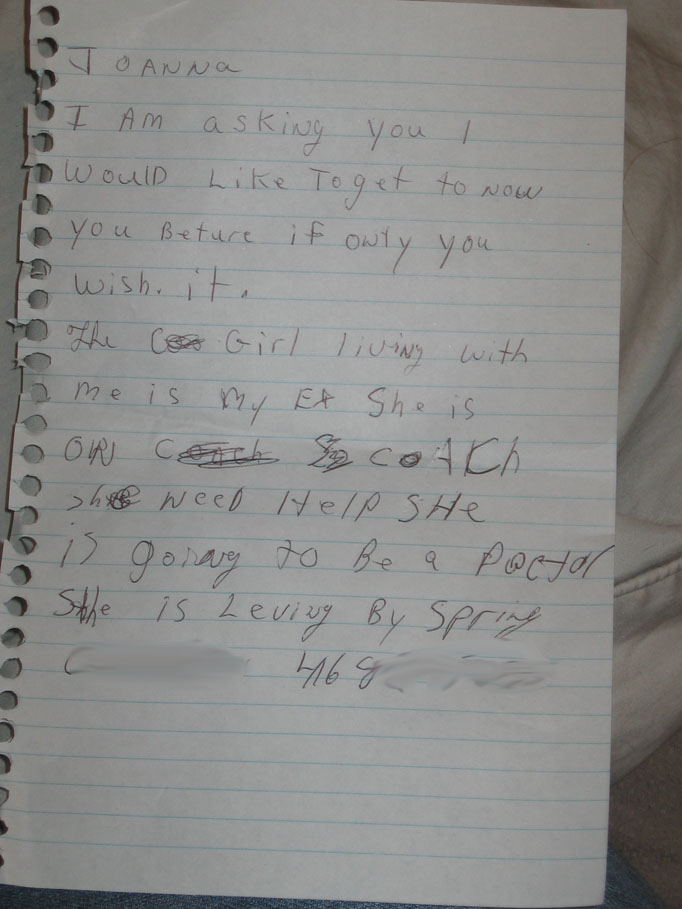 JOANNa
I AM asking you I
WOulD Like To get to NOW
you Beture if only you
wish. it.
The Girl living with
me is My EX She is
ON COAKh
she NeeD Help SHe
is going to Be a Doctor
She is Leving By Spring
416 8